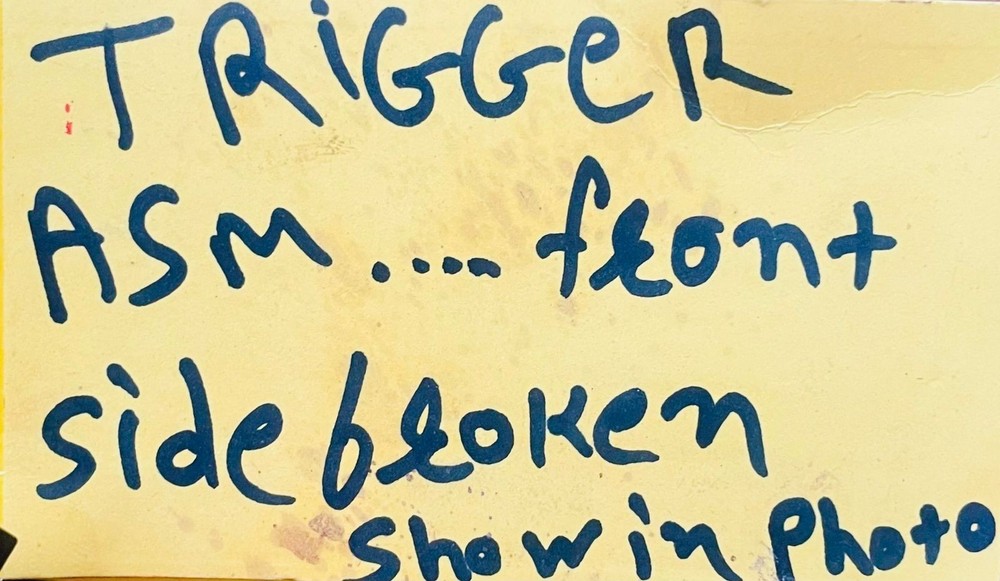 TRiGGeR
ASM.... front
side broken
show in photo